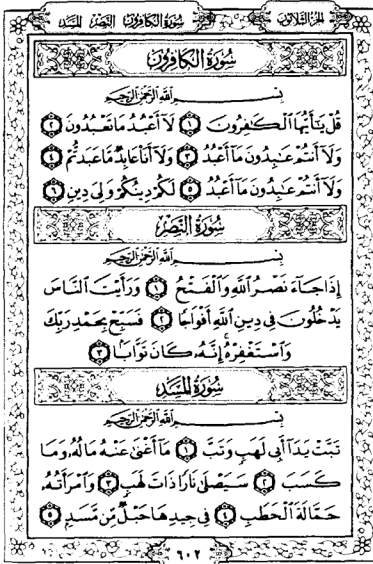 الجزء الثلاثون سورة الكافرون النصر المسد
سُورَةُ الكَافِرُونَ
بِسْمِ اللَّهِ الرَّحْمَٰنِ الرَّحِيمِ
قُلْ يَٰٓأَيُّهَا ٱلْكَٰفِرُونَ ١ لَآ أَعْبُدُ مَا تَعْبُدُونَ ٢
وَلَآ أَنتُمْ عَٰبِدُونَ مَآ أَعْبُدُ ٣ وَلَآ أَنَا۠ عَابِدٌ مَّا عَبَدتُّمْ ٤
وَلَآ أَنتُمْ عَٰبِدُونَ مَآ أَعْبُدُ ٥ لَكُمْ دِينُكُمْ وَلِيَ دِينِ ٦
سُورَةُ النَّصْرِ
بِسْمِ اللَّهِ الرَّحْمَٰنِ الرَّحِيمِ
إِذَا جَآءَ نَصْرُ ٱللَّهِ وَٱلْفَتْحُ ١ وَرَأَيْتَ ٱلنَّاسَ
يَدْخُلُونَ فِي دِينِ ٱللَّهِ أَفْوَاجًا ٢ فَسَبِّحْ بِحَمْدِ رَبِّكَ
وَٱسْتَغْفِرْهُ إِنَّهُۥ كَانَ تَوَّابًۢا ٣
سُورَةُ المَسَدِ
بِسْمِ اللَّهِ الرَّحْمَٰنِ الرَّحِيمِ
تَبَّتْ يَدَآ أَبِي لَهَبٍ وَتَبَّ ١ مَآ أَغْنَىٰ عَنْهُ مَالُهُۥ وَمَا
كَسَبَ ٢ سَيَصْلَىٰ نَارًا ذَاتَ لَهَبٍ ٣ وَٱمْرَأَتُهُۥ
حَمَّالَةَ ٱلْحَطَبِ ٤ فِي جِيدِهَا حَبْلٌ مِّن مَّسَدٍۭ ٥
٦٠٢